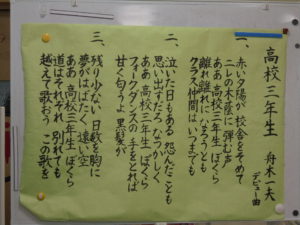 高校三年生
舟木一夫
デビュー曲
一、
赤い夕陽が 校舎をそめて
ニレの木蔭に 弾む声
ああ 高校三年生 ぼくら
離れ離れに なろうとも
クラス仲間は いつまでも
二、
泣いた日もある 怨んだことも
思い出すだろ なつかしく
ああ 高校三年生 ぼくら
フォークダンスの 手をとれば
甘く匂うよ 黒髪が
三、
残り少ない 日数を胸に
夢がはばたく 遠い空
ああ 高校三年生 ぼくら
道はそれぞれ 別れても
越えて歌おう この歌を